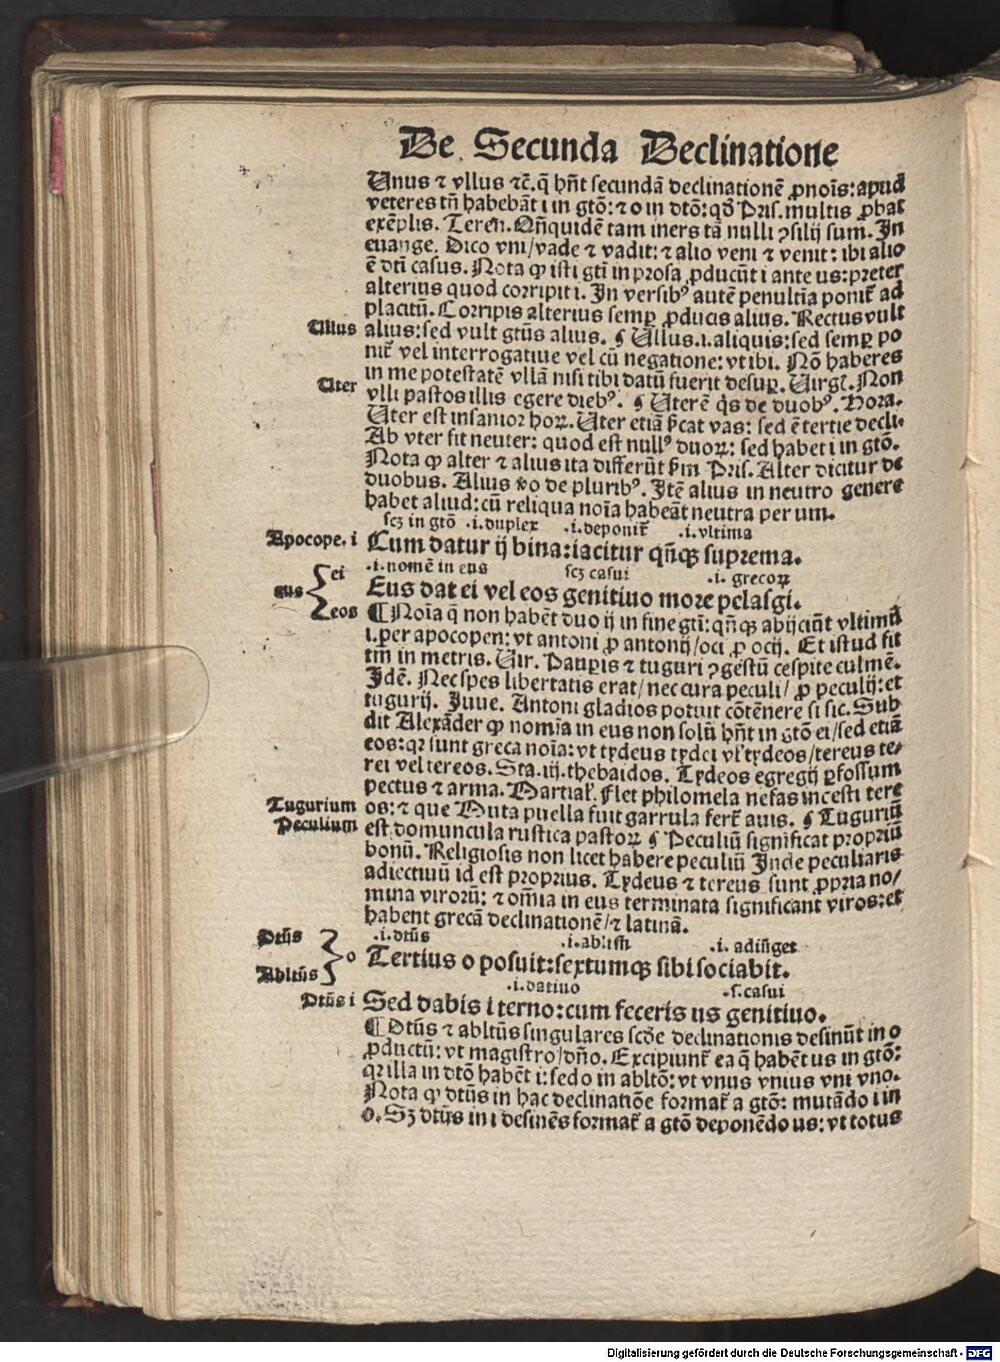 De Secunda Declinatione
Unus ⁊ vllus ⁊c̄. q̄ hn̄t secundā declinationē ꝓnoīs: apud
veteres tn̄ habebāt i in gtō: ⁊ o in dtō: qđ Pris. multis ꝓbat
exēplis. Teren̄. Qn̄quidē tam iners tā nulli ꝯsilij sum. In
euange. Dico vni/vade ⁊ vadit: ⁊ alio veni ⁊ venit: ibi alio
ē dti casus. Nota ꝙ isti gtī in prosa ꝓducūt i ante us: preter
alterius quod corripit i. In versibꝰ autē penultīa ponit̄ ad
placitū. Corripis alterius semꝑ ꝓducis alius. Rectus vult
Ullus
alius: sed vult gtūs alius. ¶ Ullus .i. aliquis: sed semꝑ po
nit̄ vel interrogatiue vel cū negatione: vt ibi. Nō haberes
in me potestatē vllā nisi tibi datū fuerit desuꝑ. Uirgl̄. Non
Uter
vlli pastos illis egere diebꝰ. ¶ Uter ē q̇s de duobꝰ. Hora.
Uter est insanior hoꝝ. Uter etiā s̄cat vas: sed ē tertie decli.
Ab vter fit neuter: quod est nullꝰ duoꝝ: sed habet i in gtō.
Nota ꝙ alter ⁊ alius ita differūt ẜm Pris. Alter dicitur de
duobus. Alius v̄o de pluribꝰ. Itē alius in neutro genere
habet aliud: cū reliqua noīa habeāt neutra per um.
scꝫ in gtō .i. duplex .i. deponit̄ .i. vltima
Apocope. i
Cum datur ij bina: iacitur qn̄qꝫ suprema.
.i. nomē in eus scꝫ casui .i. grecoꝝ
eus ei eos
Eus dat ei vel eos genitiuo more pelasgi.
¶ Noīa q̄ non habēt duo ij in fine gtī: qn̄qꝫ abijciūt vltimū
i. per apocopen: vt antoni ꝓ antonij/oci ꝓ ocij. Et istud fit
tm̄ in metris. Uir. Pauꝑis ⁊ tuguri ꝯgestū cespite culmē.
Idē. Nec spes libertatis erat/nec cura peculi/ ꝓ peculij: et
tugurij. Iuue. Antoni gladios potuit cōtēnere si sic. Sub
dit Alexāder ꝙ nomīa in eus non solū hn̄t in gtō ei/sed etiā
eos: qꝛ sunt greca noīa: vt tydeus tydei vl̄ tydeos/tereus te/
rei vel tereos. Sta. iij. thebaidos. Tydeos egregij ꝑfossum
pectus ⁊ arma. Martial̄. Flet philomela nefas incesti tere
Tugurium
os: ⁊ que Muta puella fuit garrula fert̄ auis. ¶ Tuguriū
Peculium
est domuncula rustica pastoꝝ ¶ Peculiū significat propriū
bonū. Religiosis non licet habere peculiū Inde peculiaris
adiectiuū id est proprius. Tydeus ⁊ tereus sunt ꝓpria no/
mina virorū: ⁊ om̄ia in eus terminata significant viros: et
habent grecā declinationē/⁊ latinā.
.i. dtūs .i. abltīn .i. adiūget
Dtūs Abltūs o
Tertius o posuit: sextumqꝫ sibi sociabit.
.i. datiuo .s. casui
Dtūs i
Sed dabis i terno: cum feceris us genitiuo.
¶ Dtūs ⁊ abltūs singulares scđe declinationis desinūt in o
ꝓductū: vt magistro/dn̄o. Excipiunt̄ ea q̄ habēt us in gtō:
qꝛ illa in dtō habēt i: sed o in abltō: vt vnus vnius vni vno.
Nota ꝙ dtūs in hac declinatiōe format̄ a gtō: mutādo i in
o. Sꝫ dtūs in i desinēs format̄ a gtō deponēdo us: vt totus
Digitalisierung gefördert durch die Deutsche Forschungsgemeinschaft - DFG